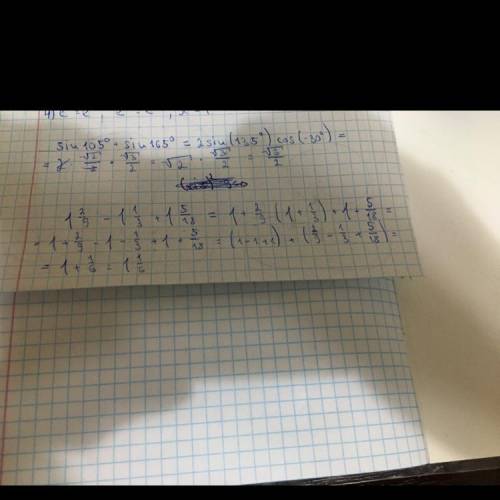 sin 105° + sin 165° = 2 sin(135°) cos(-30°) =
= 2 · √2/2 · √3/2 = √2 · √3/2 = √6/2
1 2/9 - 1 1/3 + 1 5/18 = 1 + 2/9 - (1 + 1/3) + 1 + 5/18 =
= 1 + 2/9 - 1 - 1/3 + 1 + 5/18 = (1-1+1) + (2/9 - 1/3 + 5/18) =
= 1 + 1/6 = 1 1/6